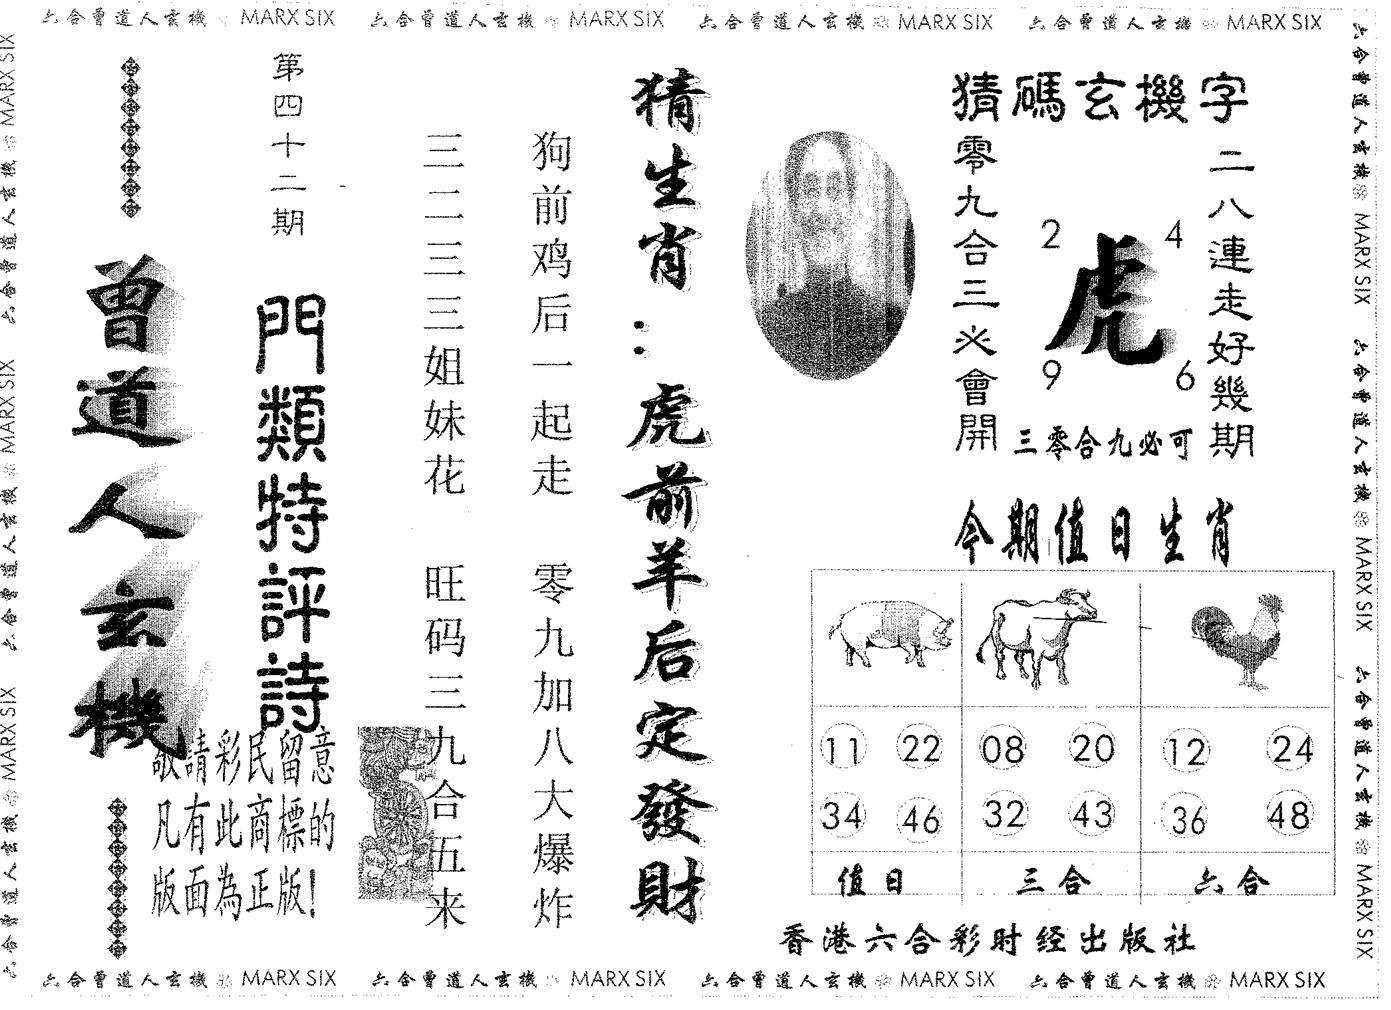 六合曾道人玄機 MARX SIX 六合曾道人玄機 MARX SIX 六合曾道人玄機 MARX SIX 六合曾道人玄機 MARX SIX
猜碼玄機字
二八連走好幾期
零九合三必會開
2 4
虎
9 6
三零合九必可
今期值日生肖
11 22 08 20 12 24
34 46 32 43 36 48
值日 三合 六合
香港六合彩时经出版社
猜生肖:虎前羊后定發財
狗前鸡后一起走 零九加八大爆炸
三二三三姐妹花 旺码三九合五来
第四十二期
門類特評詩
曾道人玄機
敬請彩民留意
凡有此商標的
版面為正版!
六合曾道人玄機 MARX SIX 六合曾道人玄機 MARX SIX 六合曾道人玄機 MARX SIX
六合曾道人玄機 MARX SIX 六合曾道人玄機 MARX SIX 六合曾道人玄機 MARX SIX
六合曾道人玄機 MARX SIX 六合曾道人玄機 MARX SIX 六合曾道人玄機 MARX SIX 六合曾道人玄機 MARX SIX